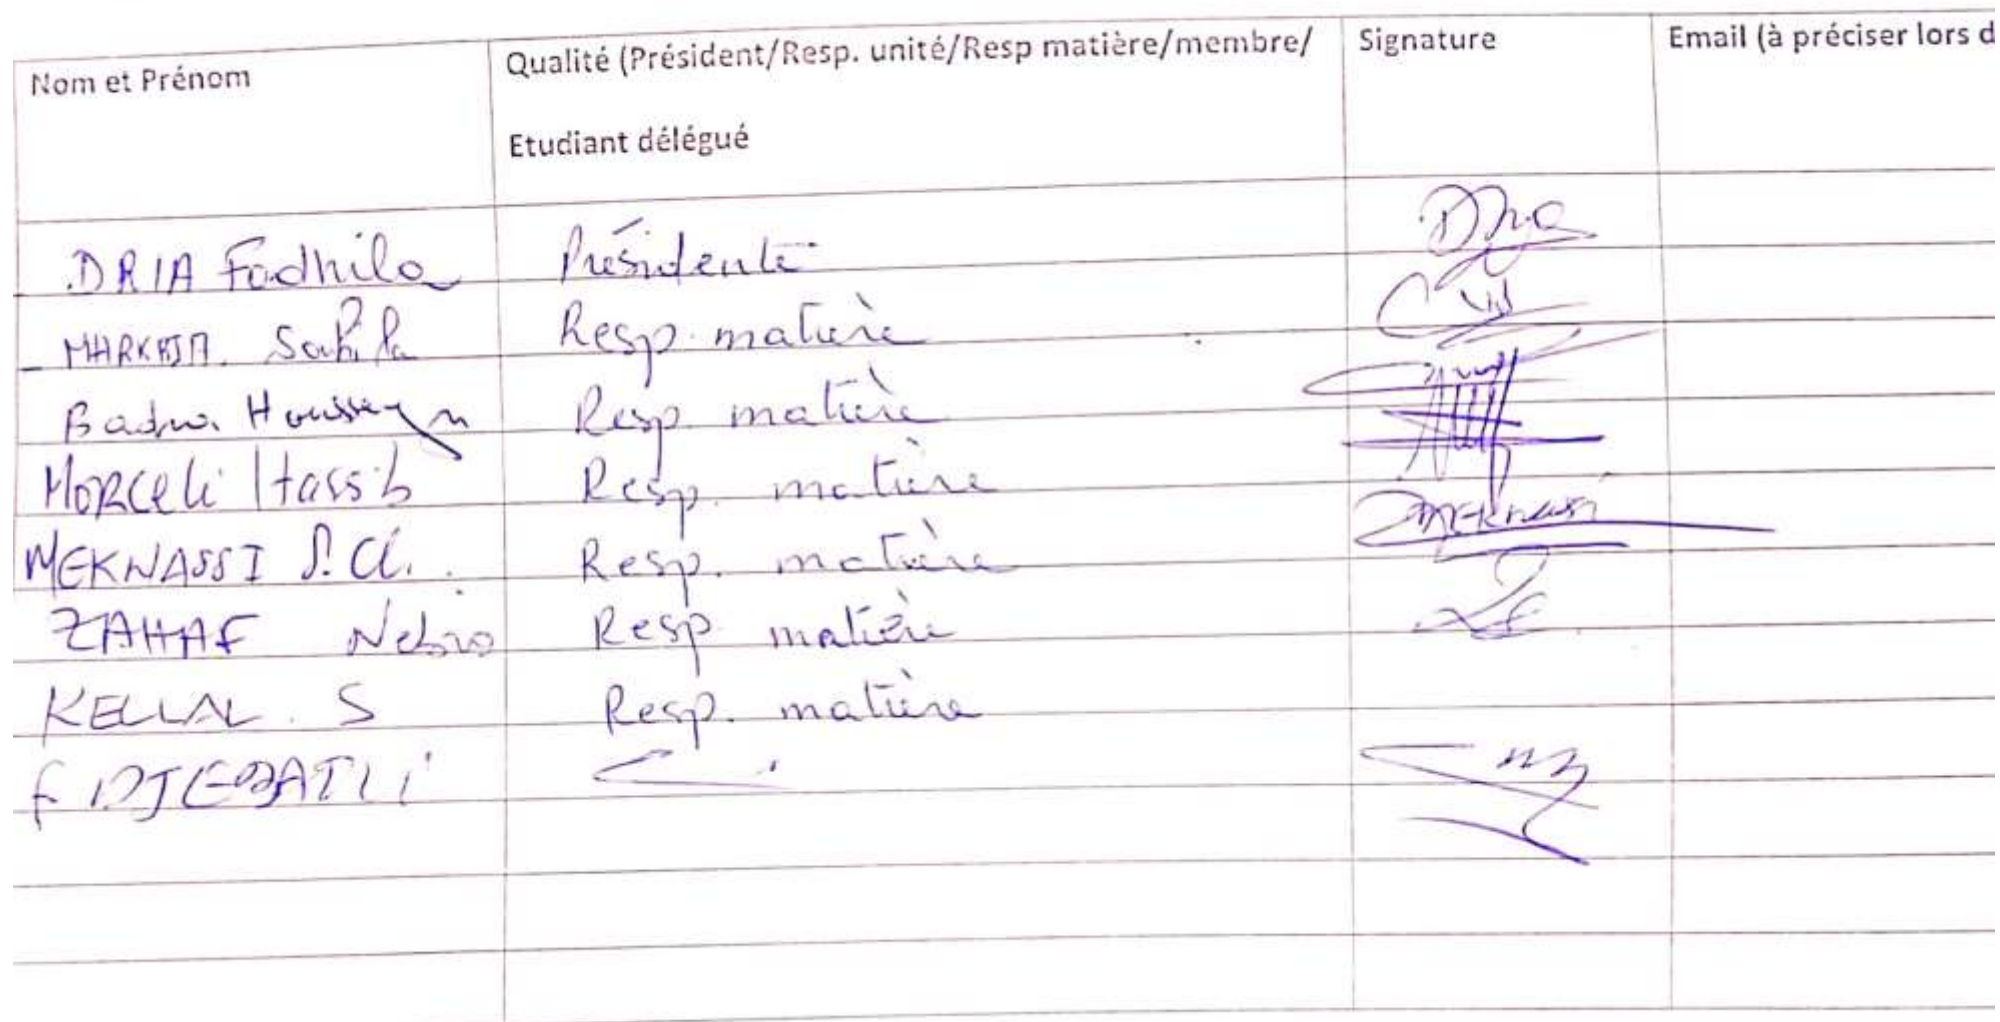 Nom et Prénom
Qualité (Président/Resp. unité/Resp matière/membre/
Etudiant délégué
Signature
Email (à préciser lors d
DRIA Fadhila Présidente
Resp. matière
Housseyn Resp. matière
MORCELi Hassib Resp. matière
MEKNASSI Resp. matière
ZAHAF Resp matière
KELLAL. S Resp. matière
F